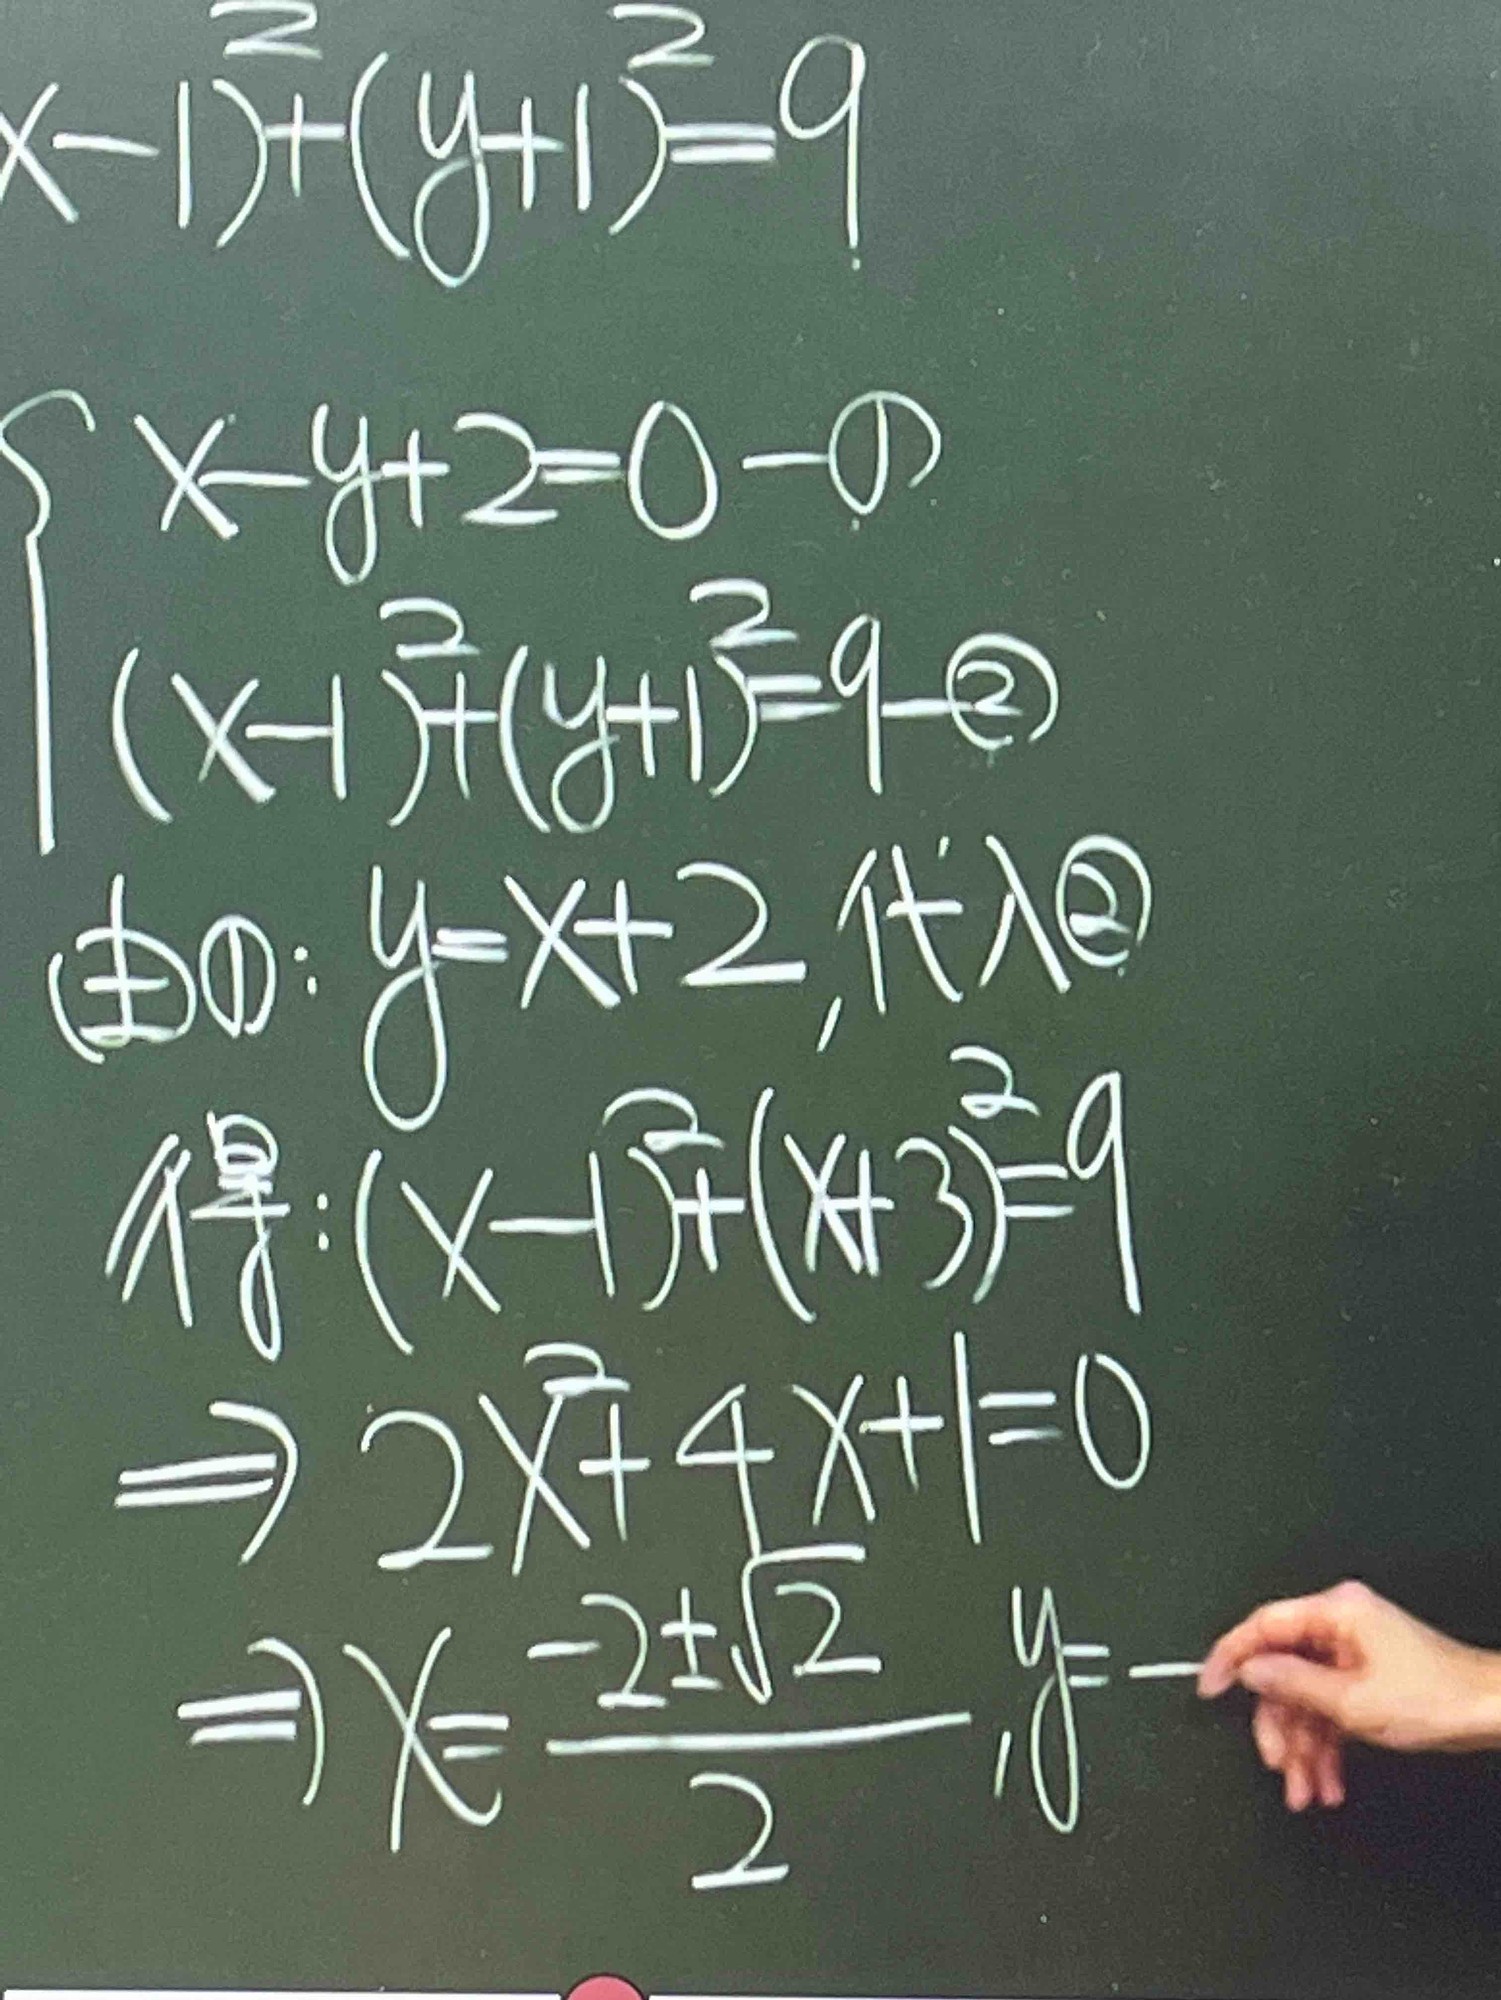 x-1)²+(y+1)²=9
x-y+2=0-①
(x-1)²+(y+1)²=9-②
由①:y=x+2,代入②
得:(x-1)²+(x+3)²=9
⇒2x²+4x+1=0
⇒x=\frac{-2±√2}{2},y=-